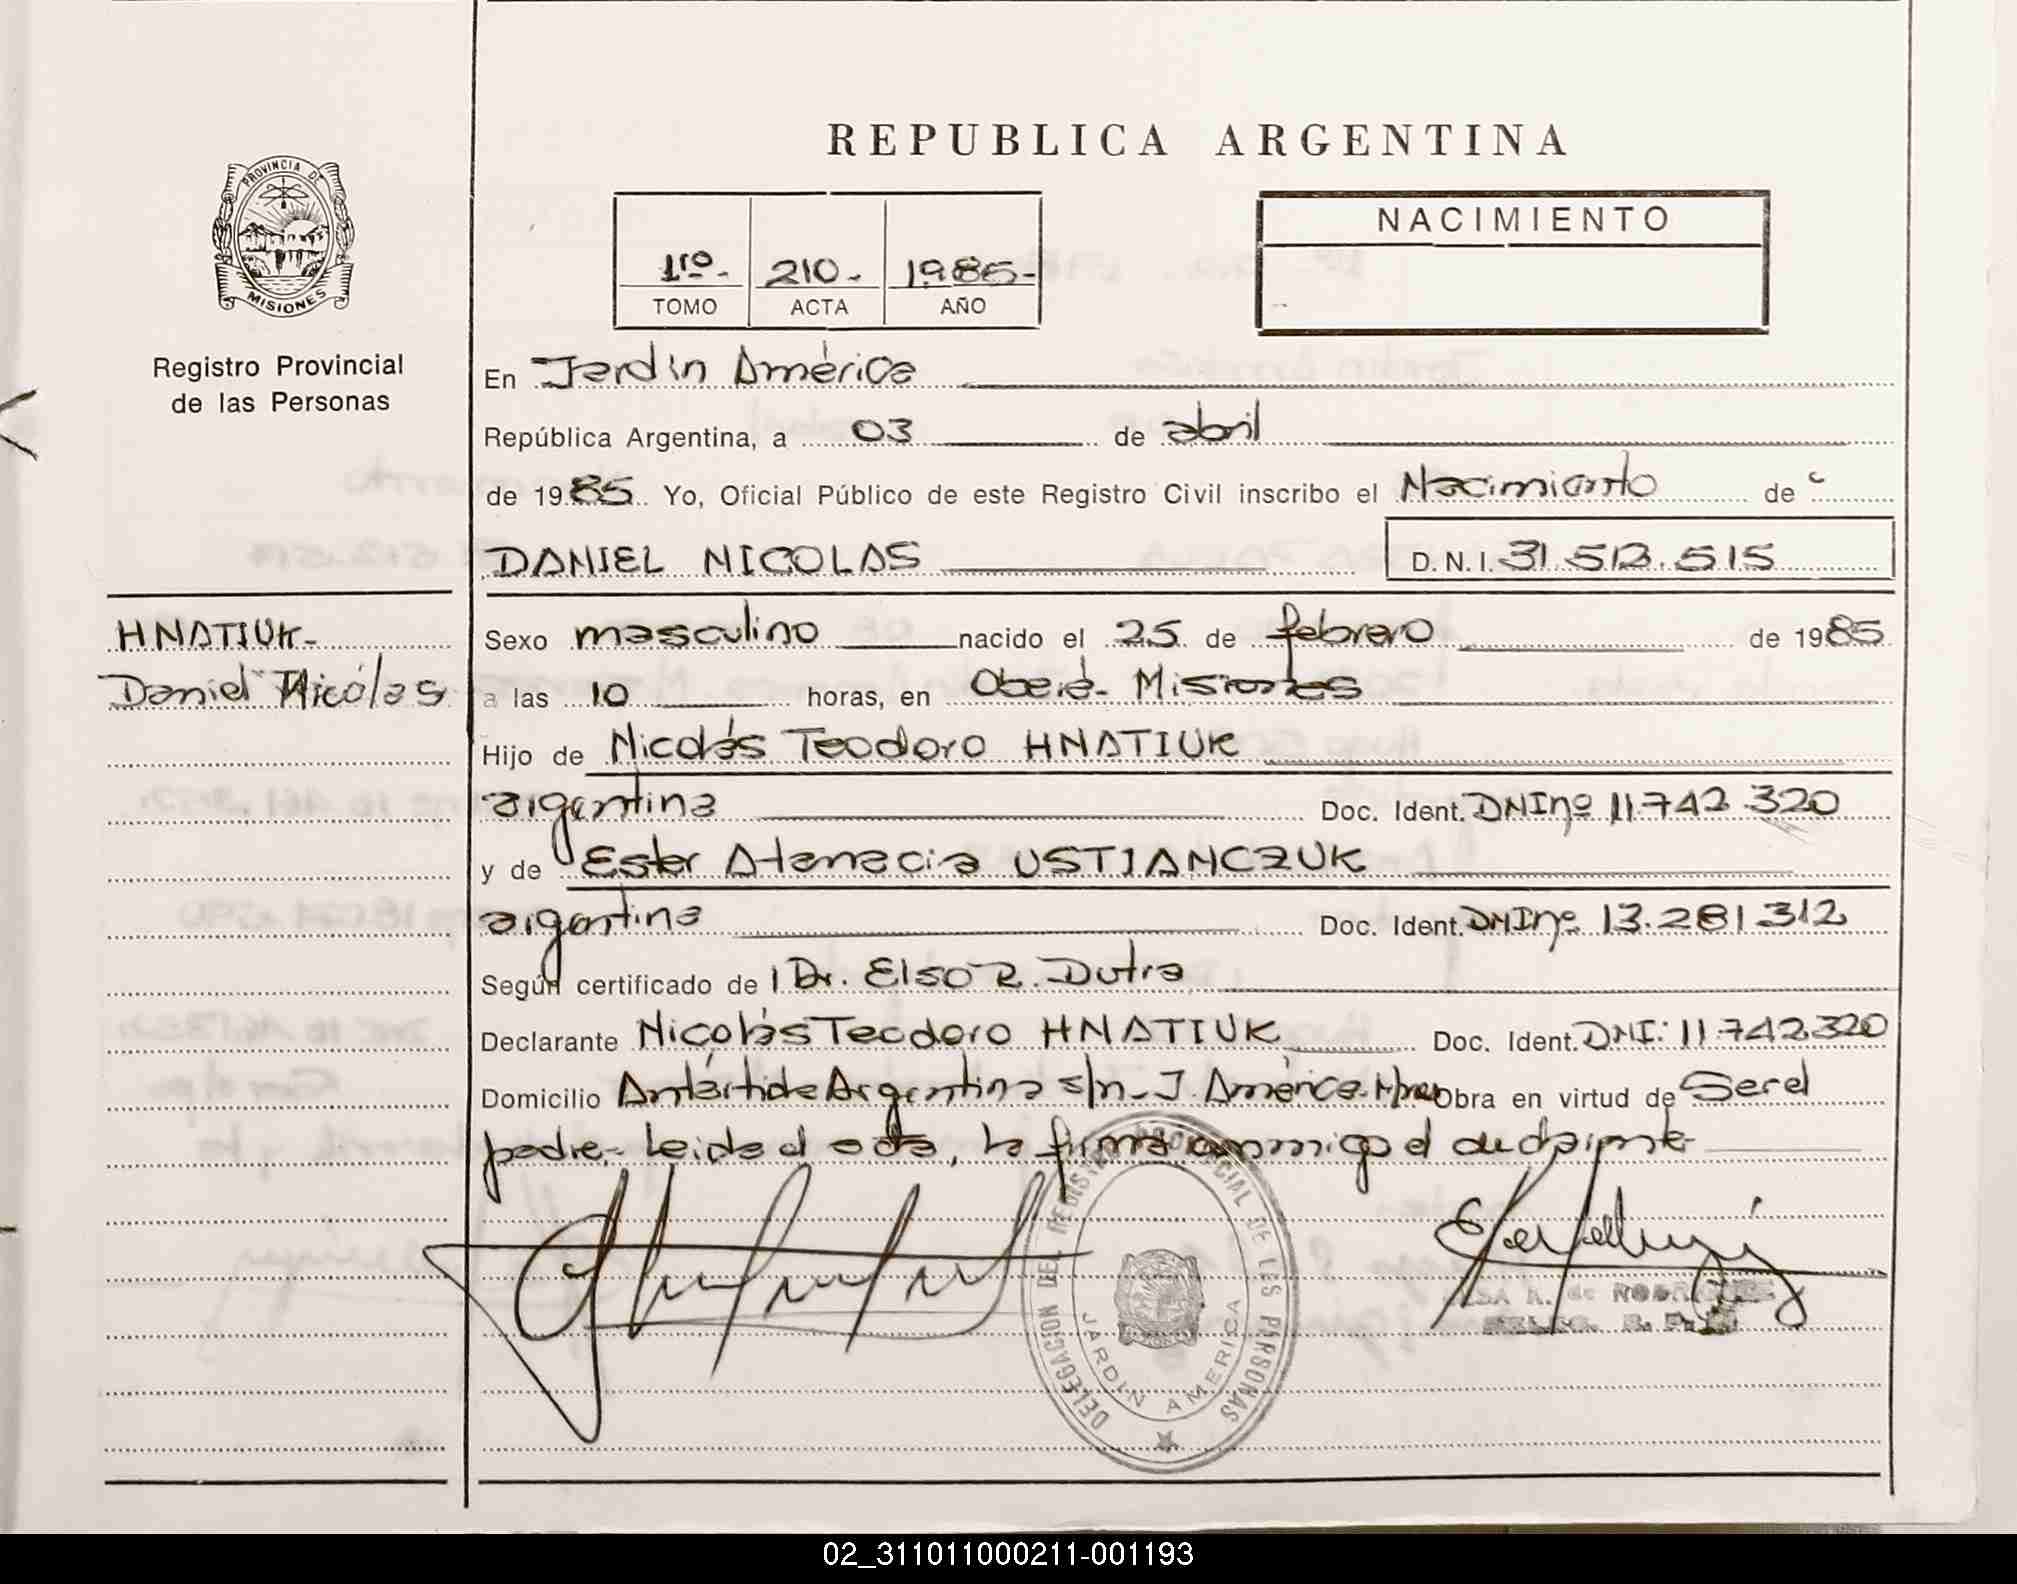 REPUBLICA ARGENTINA
PROVINCIA DE
MISIONES
Registro Provincial
de las Personas
1ro.- 210.- 1985-
TOMO ACTA AÑO
NACIMIENTO
En Jardín América
República Argentina, a 03 de abril
de 1985 Yo, Oficial Público de este Registro Civil inscribo el Nacimiento de
DANIEL NICOLAS D.N.I. 31.512.515
HNATIUK-
Daniel Nicolás
Sexo masculino nacido el 25 de febrero de 1985
a las 10 horas, en Oberá- Misiones
Hijo de Nicolás Teodoro HNATIUK
argentina Doc. Ident. DNInº 11.742.320
y de Ester Atanacia USTIANCZUK
argentina Doc. Ident. DNInº 13.281.312
Según certificado de 1 Dr. Elso R. Dutra
Declarante Nicolás Teodoro HNATIUK Doc. Ident. DNI: 11.742.320
Domicilio Antártida Argentina s/n- J. América- Mnes Obra en virtud de Ser el
padre,- Leida el acta, la firma conmigo el declarante
DELEGACION DEL REGISTRO PROVINCIAL DE LES PARSONAS
JARDIN AMERICA
ELSA R. de RODRIGUEZ
02_311011000211-001193